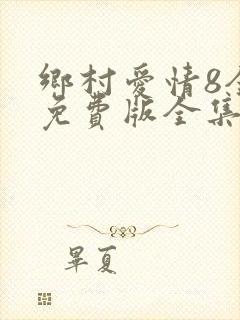 鄉村愛情8全
免費版全集
畢夏